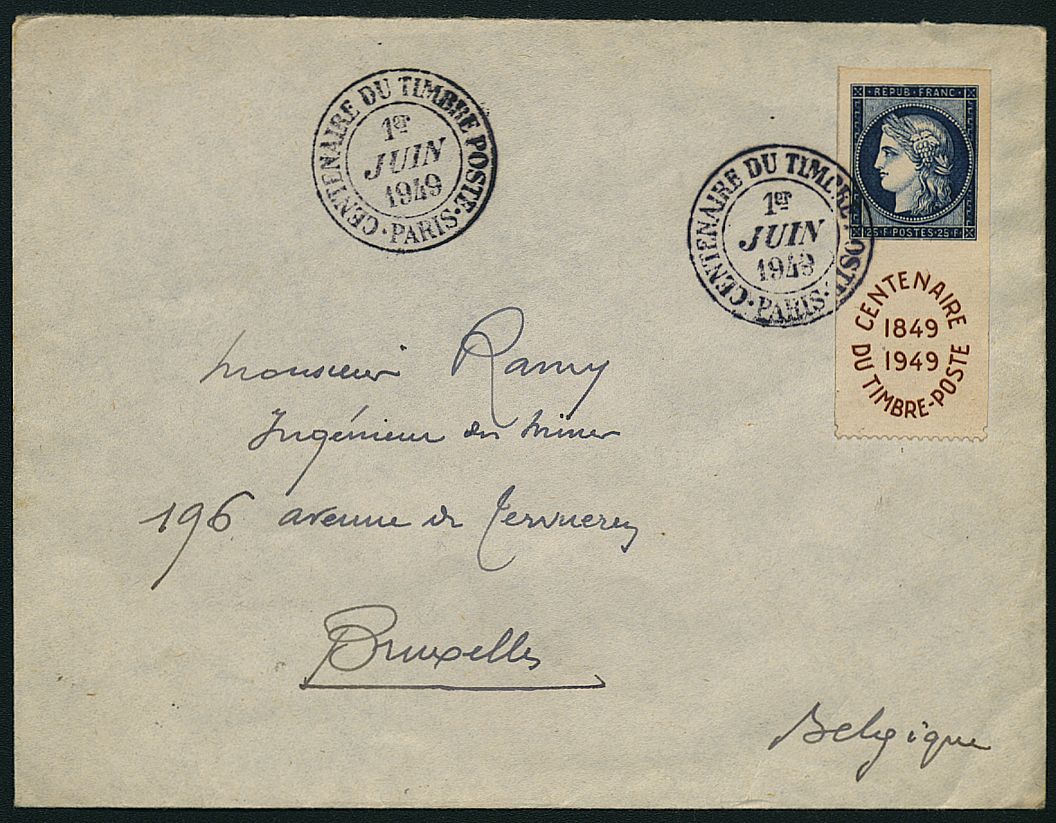 CENTENAIRE DU TIMBRE POSTE
1er
JUIN
1949
· PARIS ·
CENTENAIRE DU TIMBRE POSTE
1er
JUIN
1949
· PARIS ·
· REPUB · FRANC ·
25 · F · POSTES · 25 · F ·
CENTENAIRE
1849
1949
DU TIMBRE-POSTE
Monsieur Ramy
Ingénieur des Mines
196 avenue de Tervueren
Bruxelles
Belgique